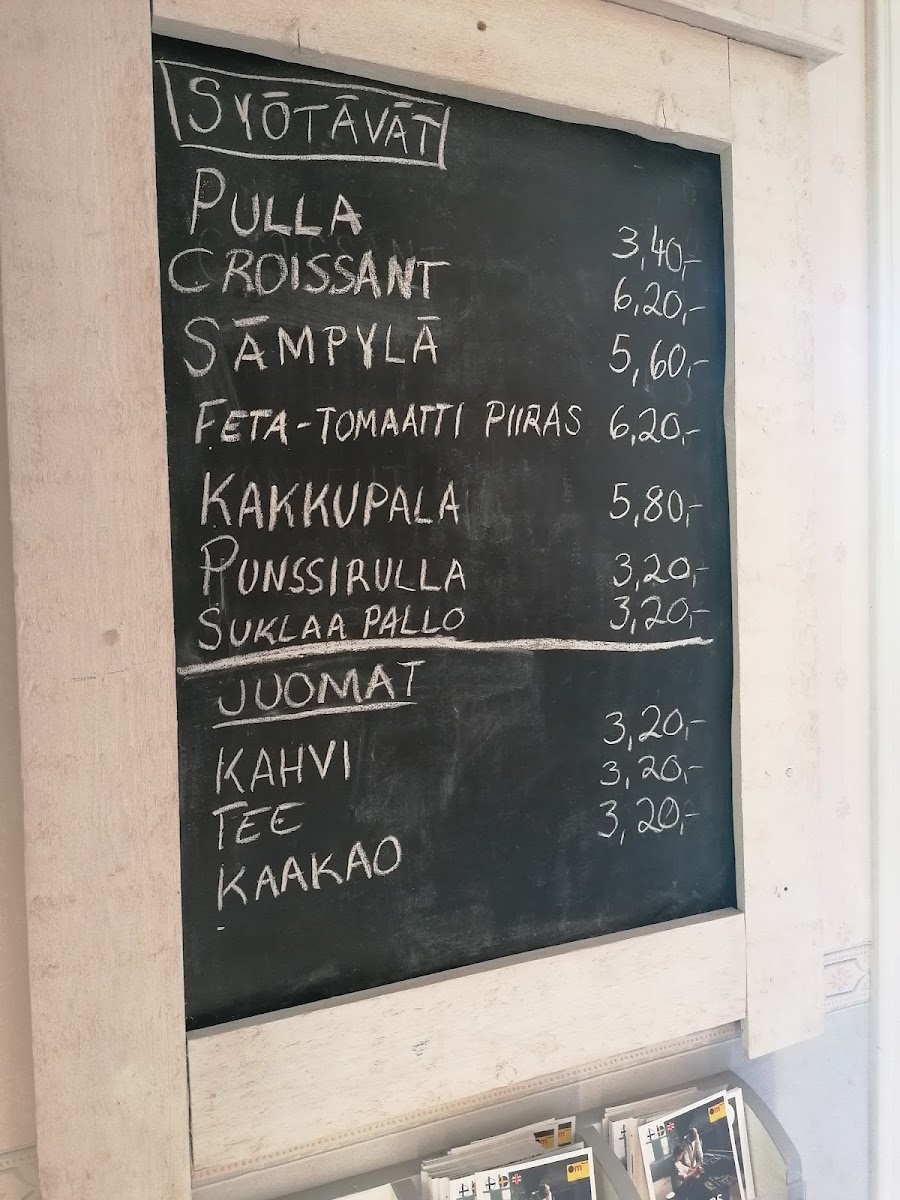 SYÖTÄVÄT
PULLA 3,40,-
CROISSANT 6,20,-
SÄMPYLÄ 5,60,-
FETA-TOMAATTI PIIRAS 6,20,-
KAKKUPALA 5,80,-
PUNSSIRULLA 3,20,-
SUKLAA PALLO 3,20,-
JUOMAT
KAHVI 3,20,-
TEE 3,20,-
KAAKAO 3,20,-
om
om